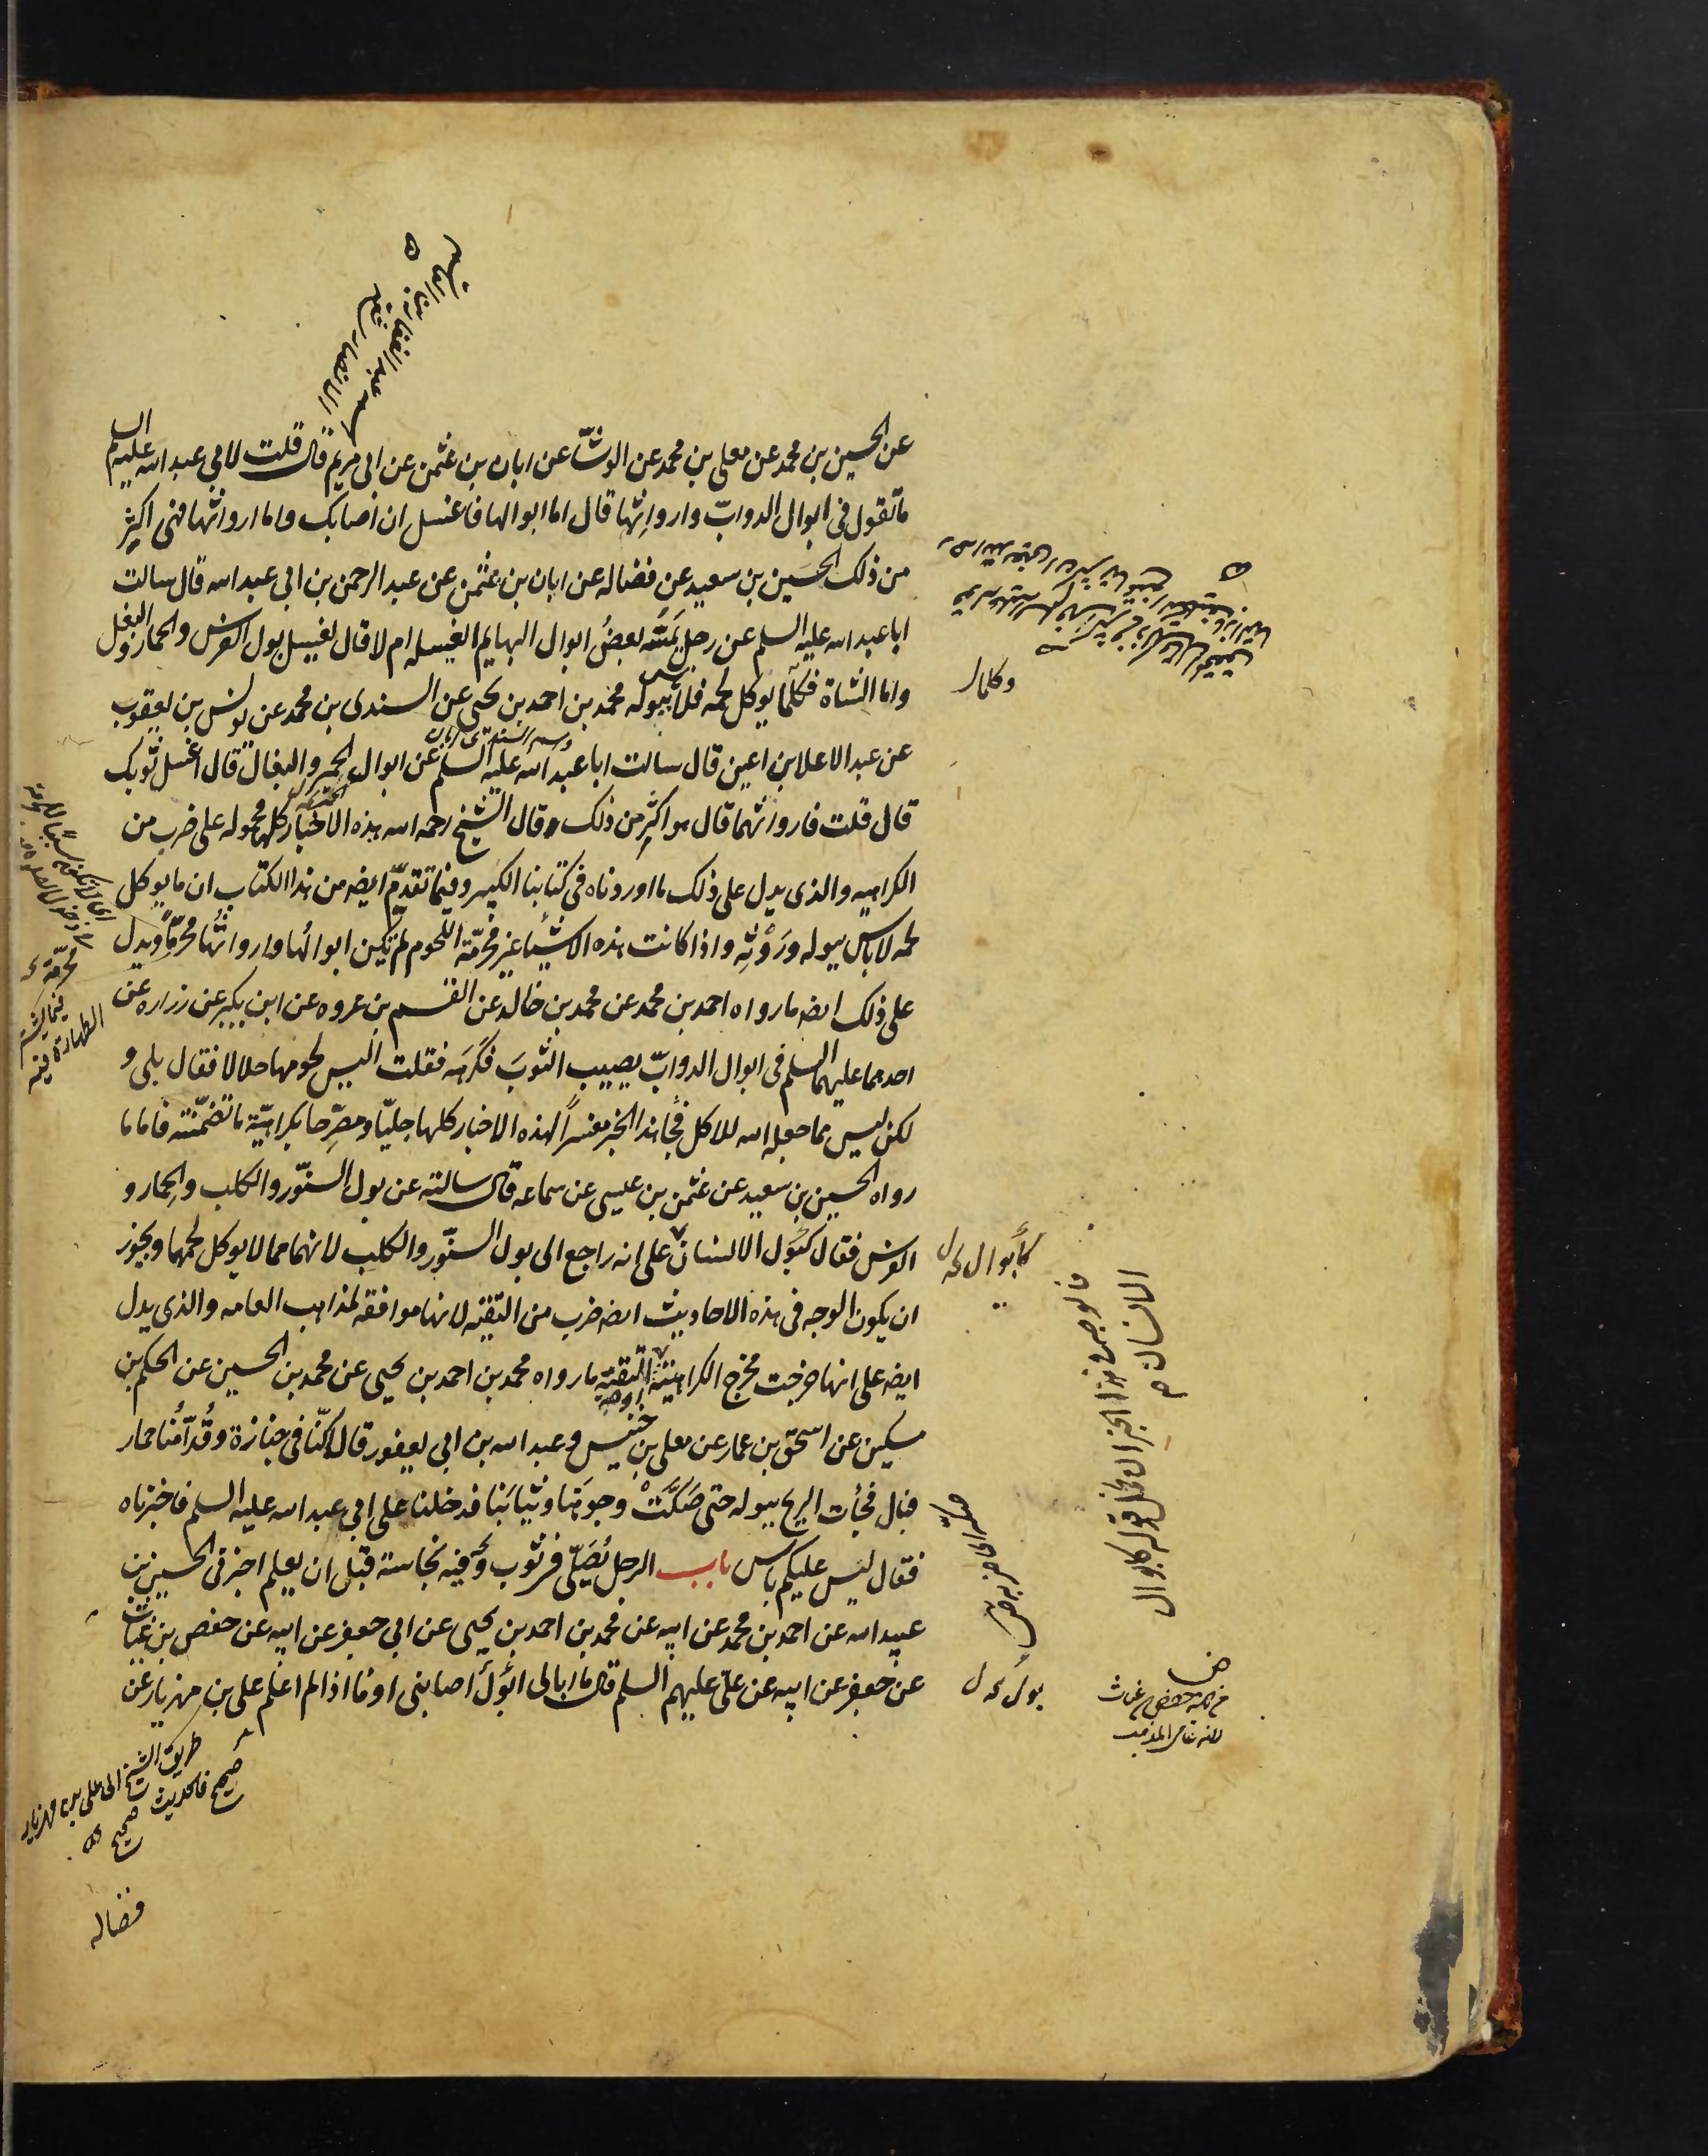 عن الحسين بن محمد عن معلى بن محمد عن الوشّا عن ابان بن عثمن عن ابى مريم قال قلت لابي عبد الله عليه السلم
ما تقول فى ابوال الدوابّ واروائها قال اما ابوالها فاغسل ان اصابك واما اروائها فهى اكثر
من ذلك الحسين بن سعيد عن فضاله عن ابان بن عثمن عن عبد الرحمن بن ابى عبد الله قال سالت
ابا عبد الله عليه السلم عن رجل يمسّه بعضُ ابوال البهايم ايغسله ام لا قال يغسل بول الفرس والحمار والبغل
واما الشاة فكلّما يوكل لحمه فلا باس ببوله محمد بن احمد بن يحيى عن السندى بن محمد عن يونس بن يعقوب
عن عبد الاعلا بن اعين قال سالت ابا عبد الله عليه السلم عن ابوال الحمير والبغال قال اغسل ثوبك
قال قلت فاروائهما قال هو اكثر من ذلك قال الشيخ رحمه الله هذه الاخبار كلها محموله على ضرب من
الكراهيه والذى يدل على ذلك ما اوردناه فى كتابنا الكبير وفيما تقدّم ايضه من هذا الكتاب ان ما يوكل
لحمه لا باس ببوله ورَوْثِه واذا كانت هذه الاشيأ غير محرّمة اللحوم لم تكن ابوالُها واروائُها محرّماً ويدل
على ذلك ايضه ما رواه احمد بن محمد عن محمد بن خالد عن القسم بن عروه عن ابن بكير عن زراره عن
احدهما عليهما السلم فى ابوال الدوابّ يصيب الثوبَ فكَرِهَه فقلت اليس لحومها حلالا فقال بلى و
لكن ليس مما جعله الله للاكل فجأ هذا الخبر مفسراً لهذه الاخبار كلها جليّا ومصرّحا بكراهيّة ما تضمّنته فاما ما
رواه الحسين بن سعيد عن عثمن بن عيسى عن سماعه قال سالته عن بول السنّور والكلب والحمار و
الفرس فقال كبَول الانسان على انه راجع الى بول السنّور والكلب لانهما مما لا يوكل لحمهما ويجوز
ان يكون الوجه فى هذه الاحاديث ايضه ضرب من التقيّه لانها موافقه لمذاهب العامه والذى يدل
ايضه على انها خرجت مخرج الكراهيّة او التقيّه ما رواه محمد بن احمد بن يحيى عن محمد بن الحسين عن الحكم بن
مسكين عن اسحق بن عمار عن معلى بن خنيس وعبد الله بن ابي يعفور قال كنّا فى جنازة وقُدّامُنا حمار
فبال فجأت الريح ببوله حتى صكّتْ وجوهَنا وثيابَنا فدخلنا على ابى عبد الله عليه السلم فاخبرناه
فقال ليس عليكم باس باب الرجل يُصَلّى فى ثوب وفيه نجاسة قبل ان يعلم اخبرنى الحسين بن
عبيد الله عن احمد بن محمد عن ابيه عن محمد بن احمد بن يحيى عن ابى جعفر عن ابيه عن حفص بن غياث
عن جعفر عن ابيه عن علىّ عليهم السلم قال ما ابالى ابَوْلٌ اصابنى او ما اذا لم اعلم على بن مهزيار عن
وكلما
كأبوال
فالوجه فى هذا الخبر ان نحمل قوله كابوال
الانسان
بول
حفص بن غياث
لانه عامى المذهب
طريق الشيخ الى على بن مهزيار
صحيح فالحديث صحيح
محرّمة
فضاله